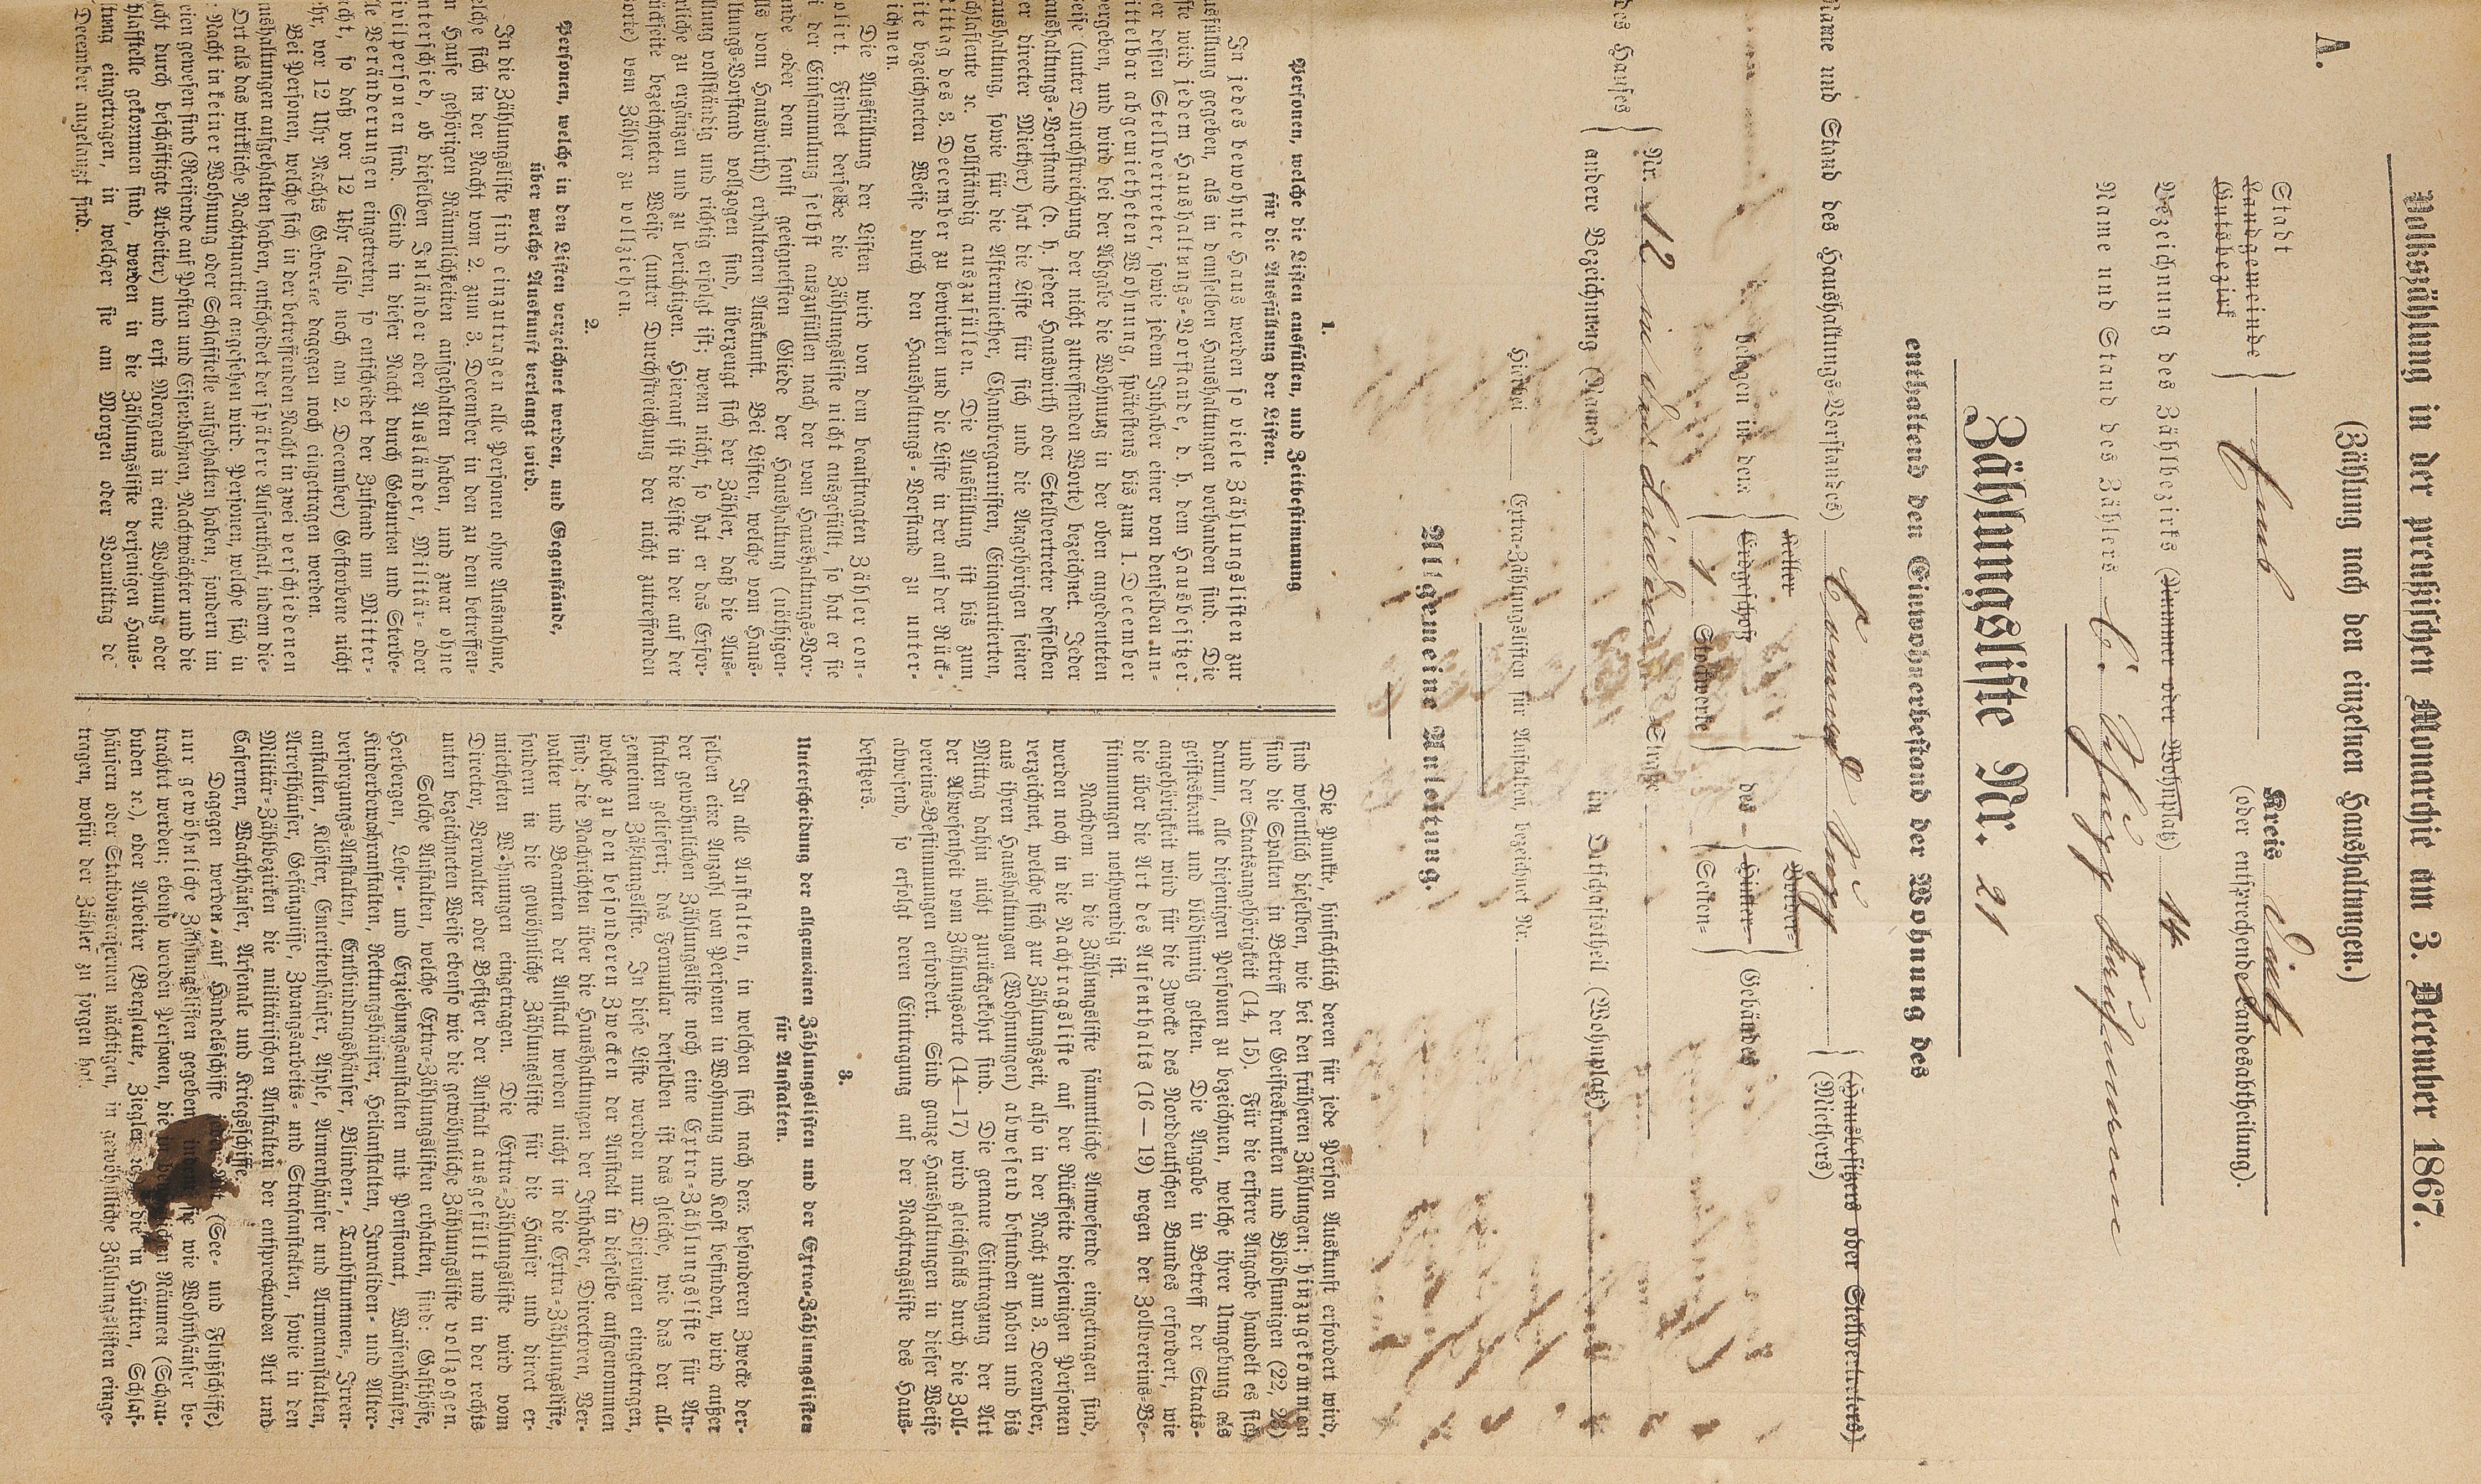 A.
Volkszählung in der preußischen Monarchie am 3. December 1867.
(Zählung nach den einzelnen Haushaltungen.)
Stadt
Landgemeinde
Gutsbezirk
Kreis
(oder entsprechende Landesabtheilung).
Bezeichnung des Zählbezirks (Nummer oder Wohnplatz) 14.
Name und Stand des Zählers C. Kaufmann
Zählungsliste Nr. 21
enthaltend den Einwohnerbestand der Wohnung des
Name und Stand des Haushaltungs-Vorstandes)
(Hausbesitzers oder Stellvertreters)
(Miethers)
belegen in dem
Keller
Erdgeschoß
1 Stockwerke
des
Vorder-
Hinter-
Seiten-
Gebäudes
des Hauses
Nr. 12 in der Straße
andere Bezeichnung (Name) im Ortschaftstheil (Wohnplatz)
Hierbei — Extra-Zählungslisten für Anstalten, bezeichnet Nr.
Allgemeine Anleitung.
1.
Personen, welche die Listen ausfüllen, und Zeitbestimmung
für die Ausfüllung der Listen.
In jedes bewohnte Haus werden so viele Zählungslisten zur
usfüllung gegeben, als in demselben Haushaltungen vorhanden sind. Die
ste wird jedem Haushaltungs-Vorstande, d. h. dem Hausbesitzer
er dessen Stellvertreter, sowie jedem Inhaber einer von demselben un-
ittelbar abgemietheten Wohnung, spätestens bis zum 1. December
ergeben, und wird bei der Abgabe die Wohnung in der oben angedeuteten
eise (unter Durchstreichung der nicht zutreffenden Worte) bezeichnet. Jeder
aushaltungs-Vorstand (d. h. jeder Hauswirth oder Stellvertreter desselben
er directer Miether) hat die Liste für sich und die Angehörigen seiner
aushaltung, sowie für die Aftermiether, Chambregarnisten, Einquartierten,
chlafleute ꝛc. vollständig auszufüllen. Die Ausfüllung ist bis zum
ittag des 3. December zu bewirken und die Liste in der auf der Rück-
ite bezeichneten Weise durch den Haushaltungs-Vorstand zu unter-
ichnen.
Die Ausfüllung der Listen wird von dem beauftragten Zähler con-
olirt. Findet derselbe die Zählungsliste nicht ausgefüllt, so hat er sie
i der Einsammlung selbst auszufüllen nach der vom Haushaltungs-Vor-
ande oder dem sonst geeignetsten Gliede der Haushaltung (nöthigen
lls vom Hauswirth) erhaltenen Auskunft. Bei Listen, welche vom Haus-
ltungs-Vorstand vollzogen sind, überzeugt sich der Zähler, daß die Aus-
llung vollständig und richtig erfolgt ist; wenn nicht, so hat er das Erfor-
rliche zu ergänzen und zu berichtigen. Hierauf ist die Liste in der auf der
ückseite bezeichneten Weise (unter Durchstreichung der nicht zutreffenden
orte) vom Zähler zu vollziehen.
2.
Personen, welche in den Listen verzeichnet werden, und Gegenstände,
über welche Auskunft verlangt wird.
In die Zählungsliste sind einzutragen alle Personen ohne Ausnahme,
elche sich in der Nacht vom 2. zum 3. December in den zu dem betreffen-
n Hause gehörigen Räumlichkeiten aufgehalten haben, und zwar ohne
nterschied, ob dieselben Inländer oder Ausländer, Militär- oder
ivilpersonen sind. Sind in dieser Nacht durch Geburten und Sterbe-
lle Veränderungen eingetreten, so entscheidet der Zustand um Mitter-
cht, so daß vor 12 Uhr (also noch am 2. December) Gestorbene nicht
hr, vor 12 Uhr Nachts Geborene dagegen noch eingetragen werden.
Bei Personen, welche sich in der betreffenden Nacht in zwei verschiedenen
aushaltungen aufgehalten haben, entscheidet der spätere Aufenthalt, indem die-
Ort als das wirkliche Nachtquartier angesehen wird. Personen, welche sich in
r Nacht in keiner Wohnung oder Schlafstelle aufgehalten haben, sondern im
eien gewesen sind (Reisende auf Posten und Eisenbahnen, Nachtwächter und die
acht durch beschäftigte Arbeiter) und erst Morgens in eine Wohnung oder
chlafstelle gekommen sind, werden in die Zählungsliste derjenigen Haus-
ltung eingetragen, in welcher sie am Morgen oder Vormittag de
December angelangt sind.
Die Punkte, hinsichtlich deren für jede Person Auskunft erfordert wird,
sind wesentlich dieselben, wie bei den früheren Zählungen; hinzugekommen
sind die Spalten in Betreff der Geisteskranken und Blödsinnigen (22, 23)
und der Staatsangehörigkeit (14, 15). Für die erstere Angabe handelt es sich
darum, alle diejenigen Personen zu bezeichnen, welche ihrer Umgebung als
geisteskrank und blödsinnig gelten. Die Angabe in Betreff der Staats-
angehörigkeit wird für die Zwecke des Norddeutschen Bundes erfordert, wie
die über die Art des Aufenthalts (16—19) wegen der Zollvereins-Be-
stimmungen nothwendig ist.
Nachdem in die Zählungsliste sämmtliche Anwesende eingetragen sind,
werden noch in die Nachtragsliste auf der Rückseite diejenigen Personen
verzeichnet, welche sich zur Zählungszeit, also in der Nacht zum 3. December,
aus ihren Haushaltungen (Wohnungen) abwesend befunden haben und bis
Mittag dahin nicht zurückgekehrt sind. Die genaue Eintragung der Art
der Abwesenheit vom Zählungsorte (14—17) wird gleichfalls durch die Zoll-
vereins-Bestimmungen erfordert. Sind ganze Haushaltungen in dieser Weise
abwesend, so erfolgt deren Eintragung auf der Nachtragsliste des Haus-
besitzers.
3.
Unterscheidung der allgemeinen Zählungslisten und der Extra-Zählungslisten
für Anstalten.
In alle Anstalten, in welchen sich nach dem besonderen Zwecke der-
selben eine Anzahl von Personen in Wohnung und Kost befinden, wird außer
der gewöhnlichen Zählungsliste noch eine Extra-Zählungsliste für An-
stalten geliefert; das Formular derselben ist das gleiche, wie das der all-
gemeinen Zählungsliste. In diese Liste werden nur Diejenigen eingetragen,
welche zu den besonderen Zwecken der Anstalt in dieselbe aufgenommen
sind; die Nachrichten über die Haushaltungen der Inhaber, Directoren, Ver-
walter und Beamten der Anstalt werden nicht in die Extra-Zählungsliste,
sondern in die gewöhnliche Zählungsliste für die Häuser und direct er-
mietheten Wohnungen eingetragen. Die Extra-Zählungsliste wird vom
Director, Verwalter oder Besitzer der Anstalt ausgefüllt und in der rechts
unten bezeichneten Weise ebenso wie die gewöhnliche Zählungsliste vollzogen.
Solche Anstalten, welche Extra-Zählungslisten erhalten, sind: Gasthöfe,
Herbergen, Lehr- und Erziehungsanstalten mit Pensionat, Waisenhäuser,
Kinderbewahranstalten, Rettungshäuser, Heilanstalten, Invaliden- und Alter-
versorgungs-Anstalten, Entbindungshäuser, Blinden-, Taubstummen-, Irren-
anstalten, Klöster, Emeritenhäuser, Asyle, Armenhäuser und Armenanstalten,
Arresthäuser, Gefängnisse, Zwangsarbeits- und Strafanstalten, sowie in den
Militär-Zählbezirken die militärischen Anstalten der entsprechenden Art und
Casernen, Wachthäuser, Arsenale und Kriegsschiffe.
Dagegen werden auf Handelsschiffe (See- und Flußschiffe)
nur gewöhnliche Zählungslisten gegeben, indem wie Wohnhäuser be-
trachtet werden; ebenso werden Personen, die Räumen (Schau-
buden ꝛc.), oder Arbeiter (Bergleute, Ziegler ꝛc.), die in Hütten, Schlaf-
häusern oder Stationscasernen nächtigen, in gewöhnliche Zählungslisten einge-
tragen, wofür der Zähler zu sorgen hat.